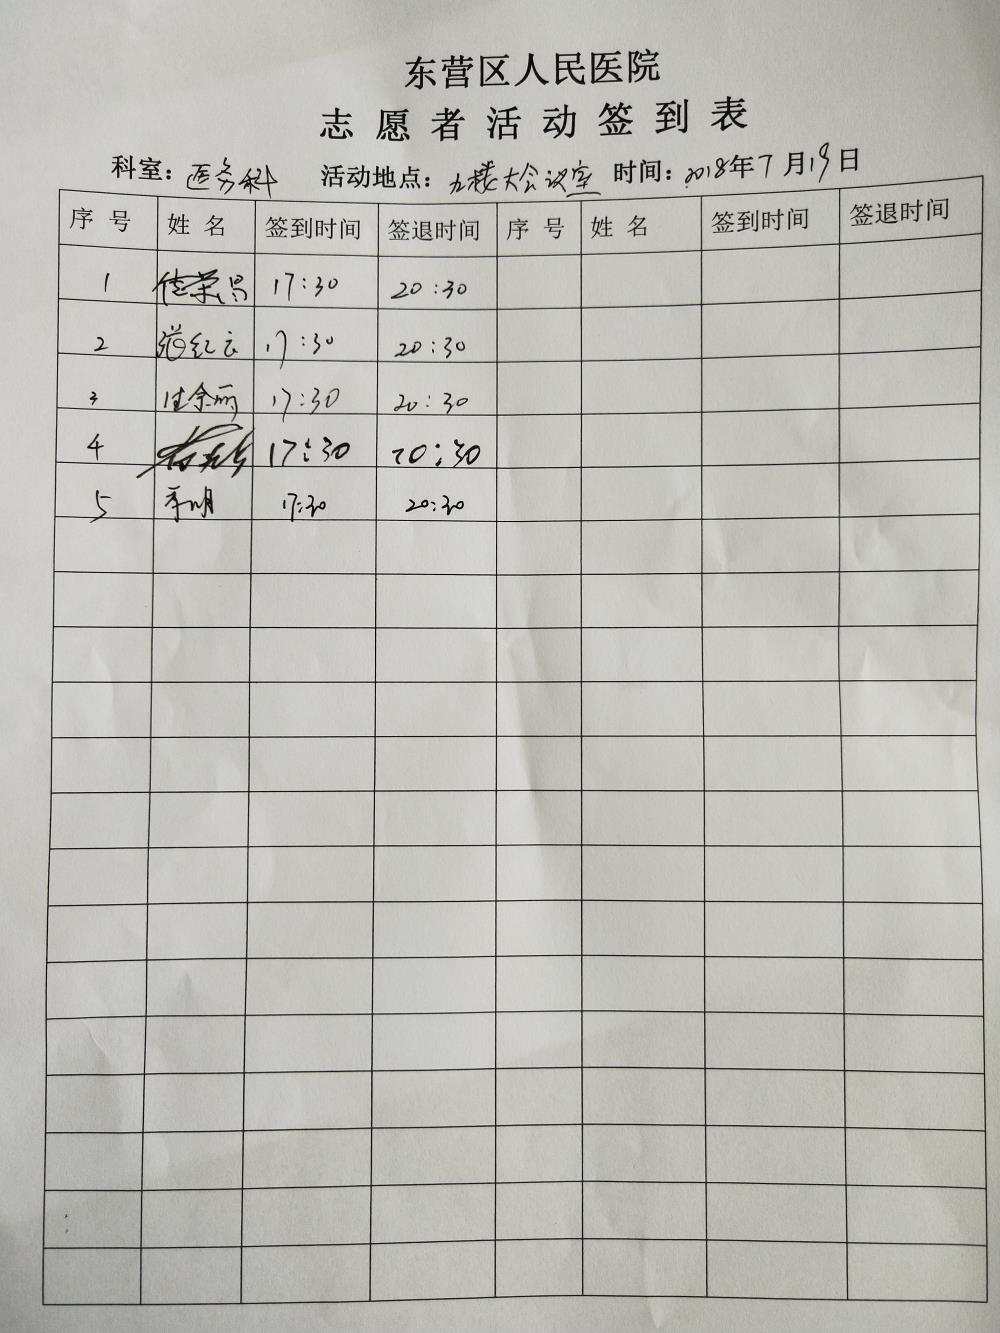 东营区人民医院
志愿者活动签到表
科室：医务科 活动地点：九楼大会议室 时间：2018年7月19日
序号 姓名 签到时间 签退时间 序号 姓名 签到时间 签退时间
1 17:30 20:30
2 17:30 20:30
3 17:30 20:30
4 17:30 20:30
5 李明 17:30 20:30